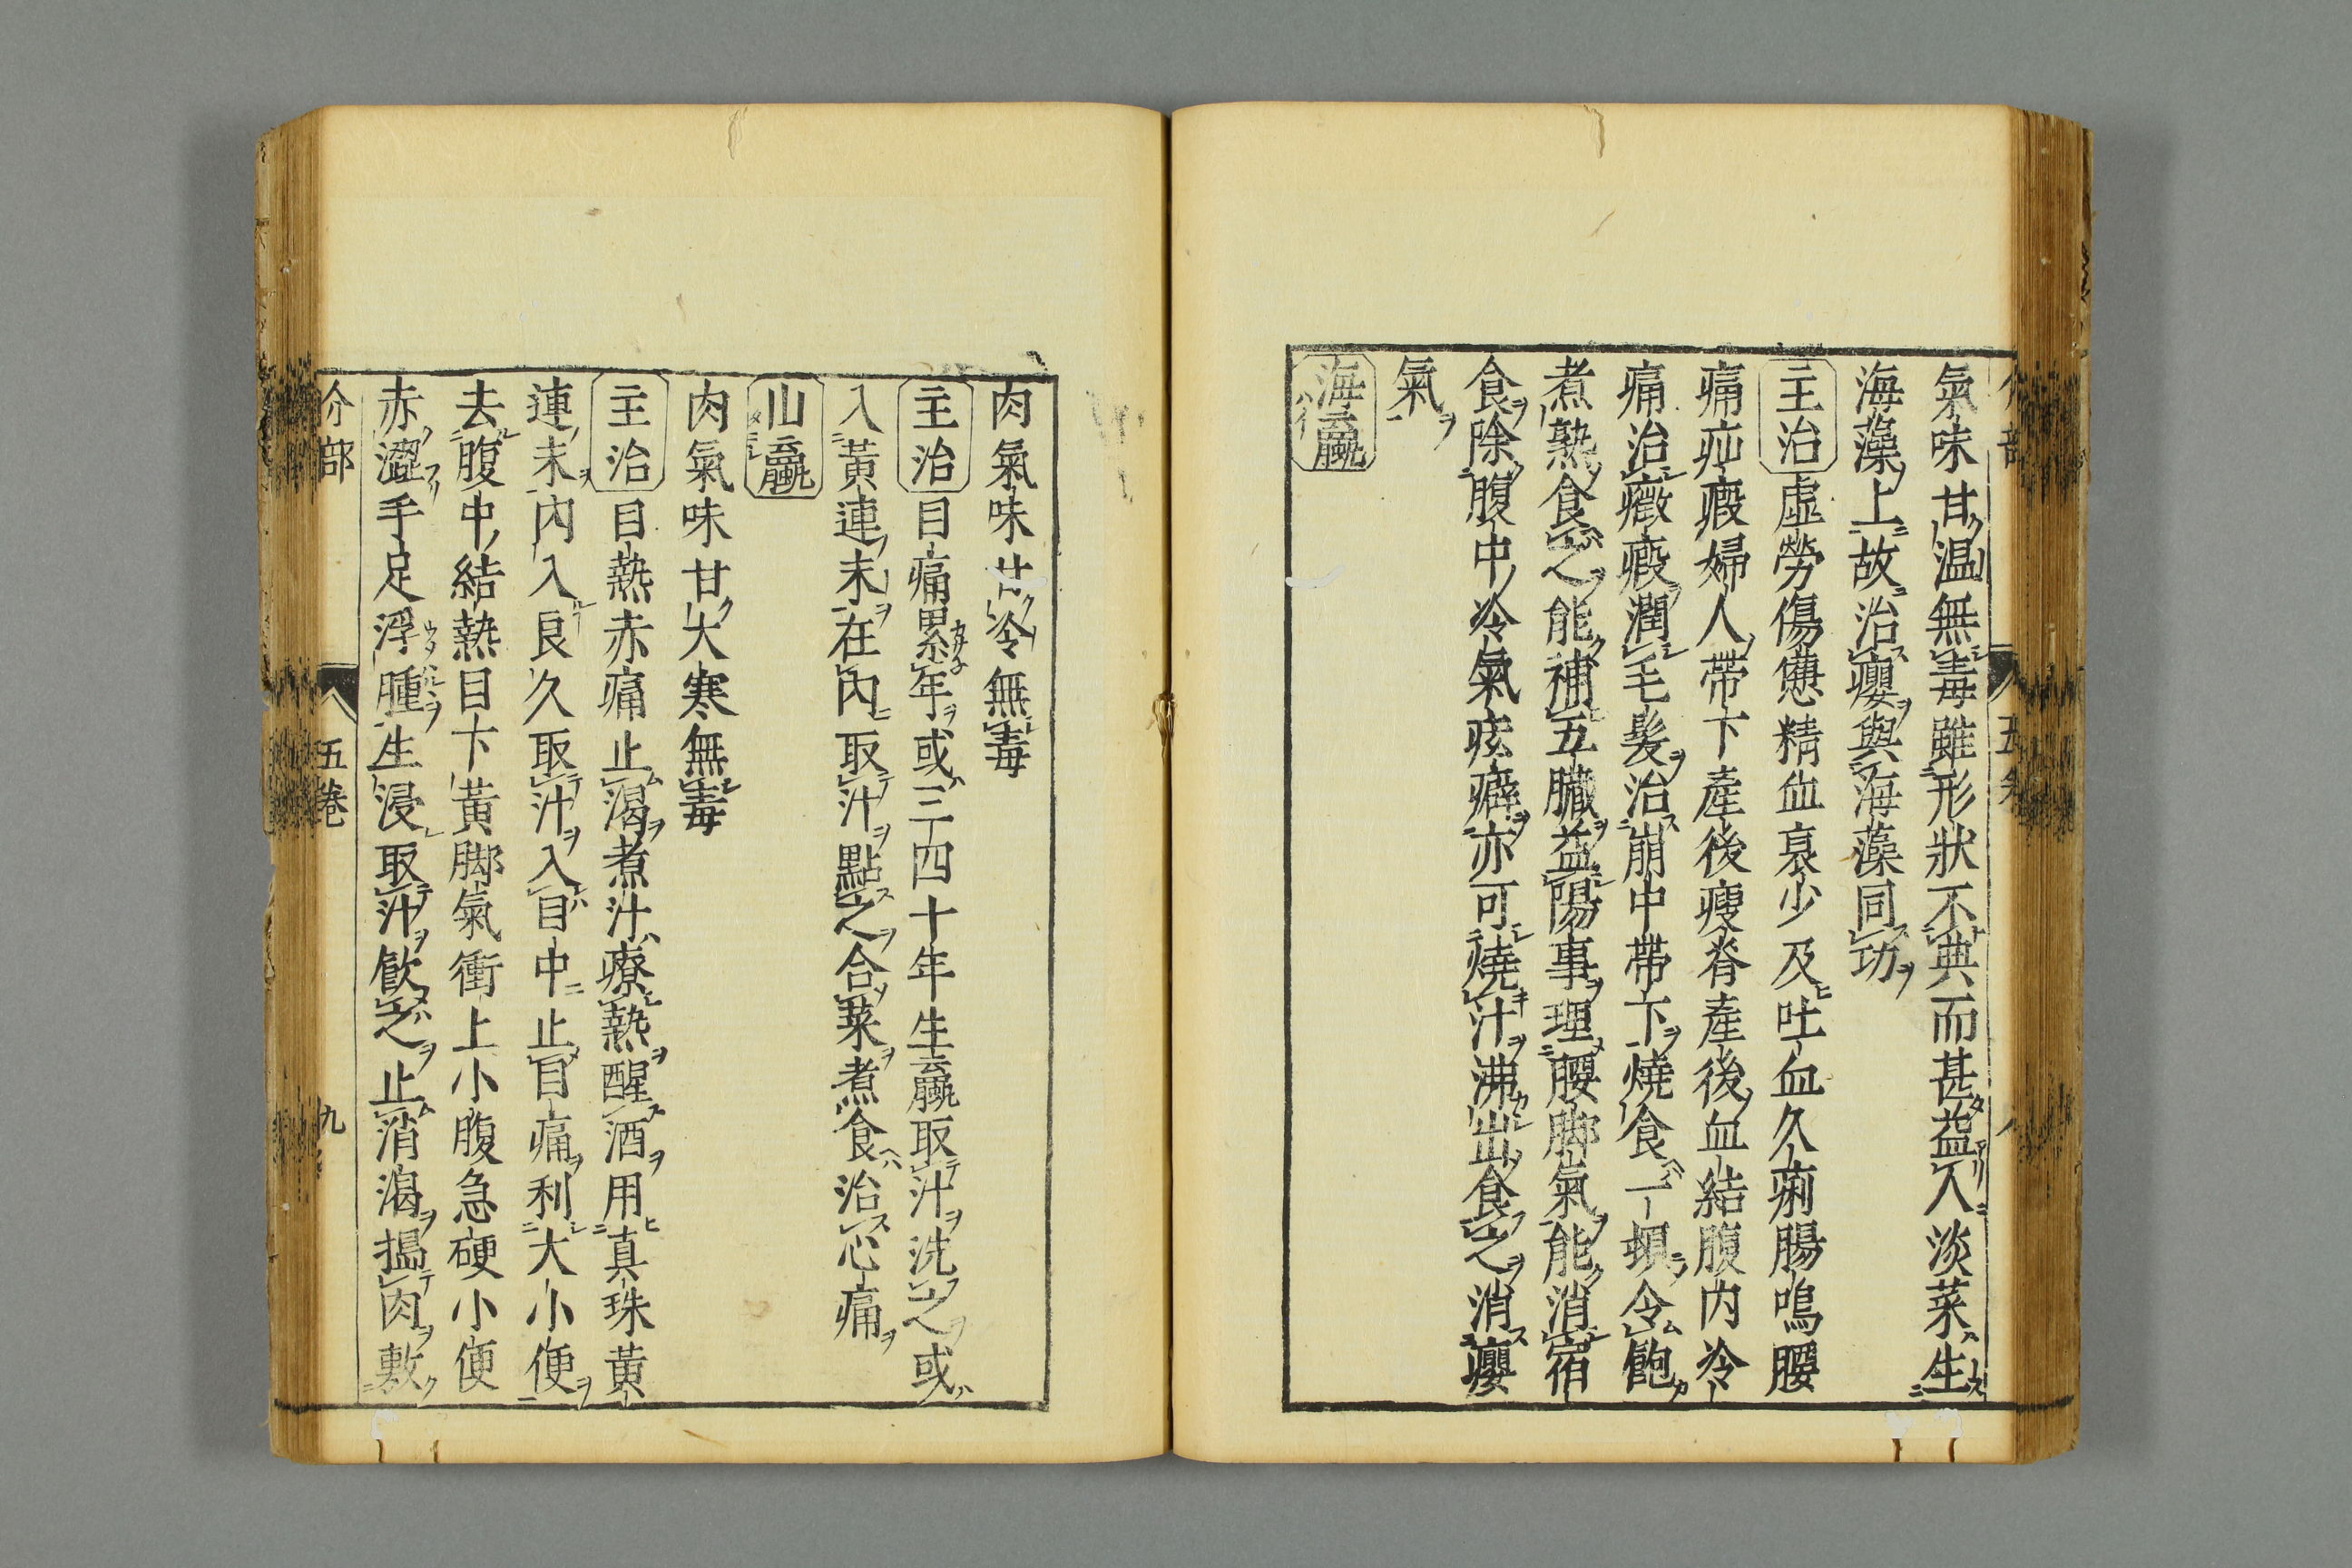 氣味甘温無毒雖形狀不典而甚益人淡菜生
海藻上故治癭與海藻同功
主治虛勞傷憊精血衰少及吐血久痢腸鳴腰
痛疝瘕婦人帶下產後瘦脊產後血結腹内冷
痛治癥瘕潤毛髮治崩中帶下燒食一頓令飽
煮熟食之能補五臟益陽事理腰脚氣能消宿
食除腹中冷氣痃癖亦可燒汁沸出食之消癭
氣
海蠃
肉氣味甘冷無毒
主治目痛累年或三四十年生蠃取汁洗之或
入黃連末在內取汁點之合菜煮食治心痛
山蠃
肉氣味甘大寒無毒
主治目熱赤痛止渴煮汁療熱醒酒用真珠黃
連末內入良久取汁入目中止目痛利大小便
去腹中結熱目下黃脚氣衝上小腹急硬小便
赤澀手足浮腫生浸取汁飲之止消渴搗肉敷
介部 五巻 九